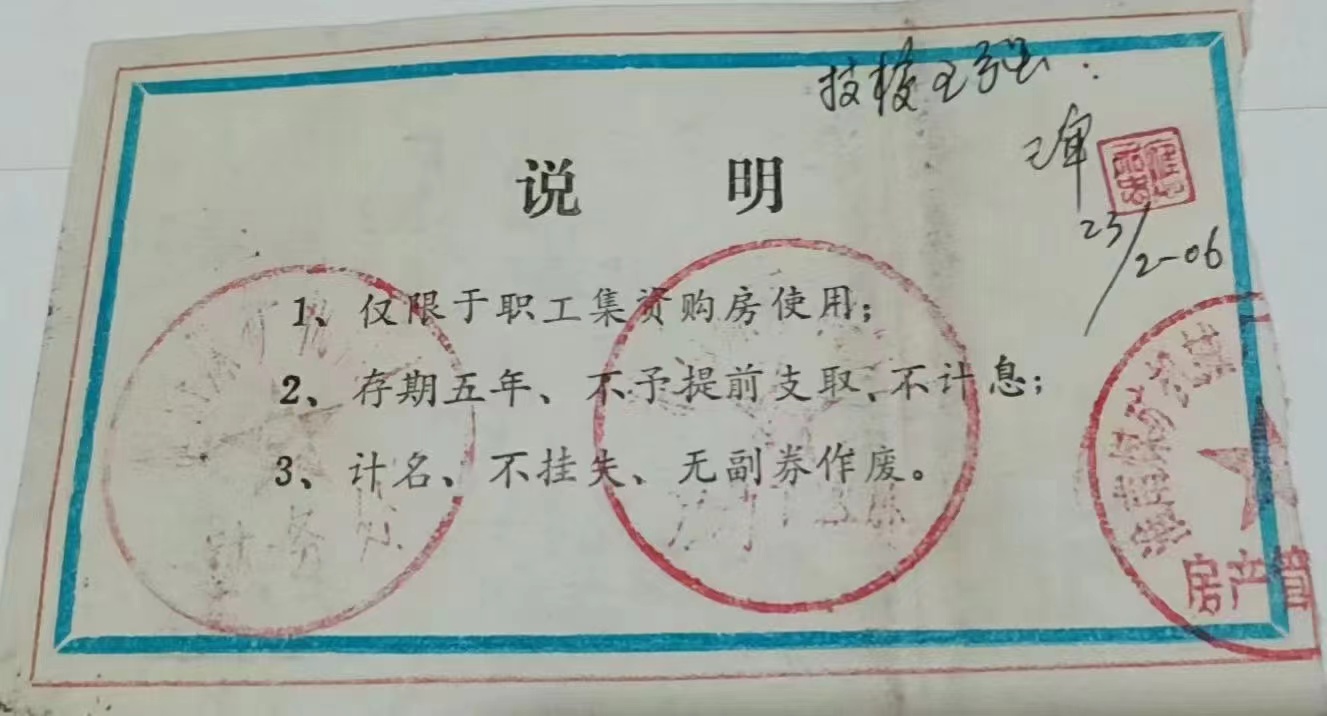 技校王
审
23/2-06
说 明
1、仅限于职工集资购房使用；
2、存期五年、不予提前支取、不计息；
3、计名、不挂失、无副券作废。
财务
房产管